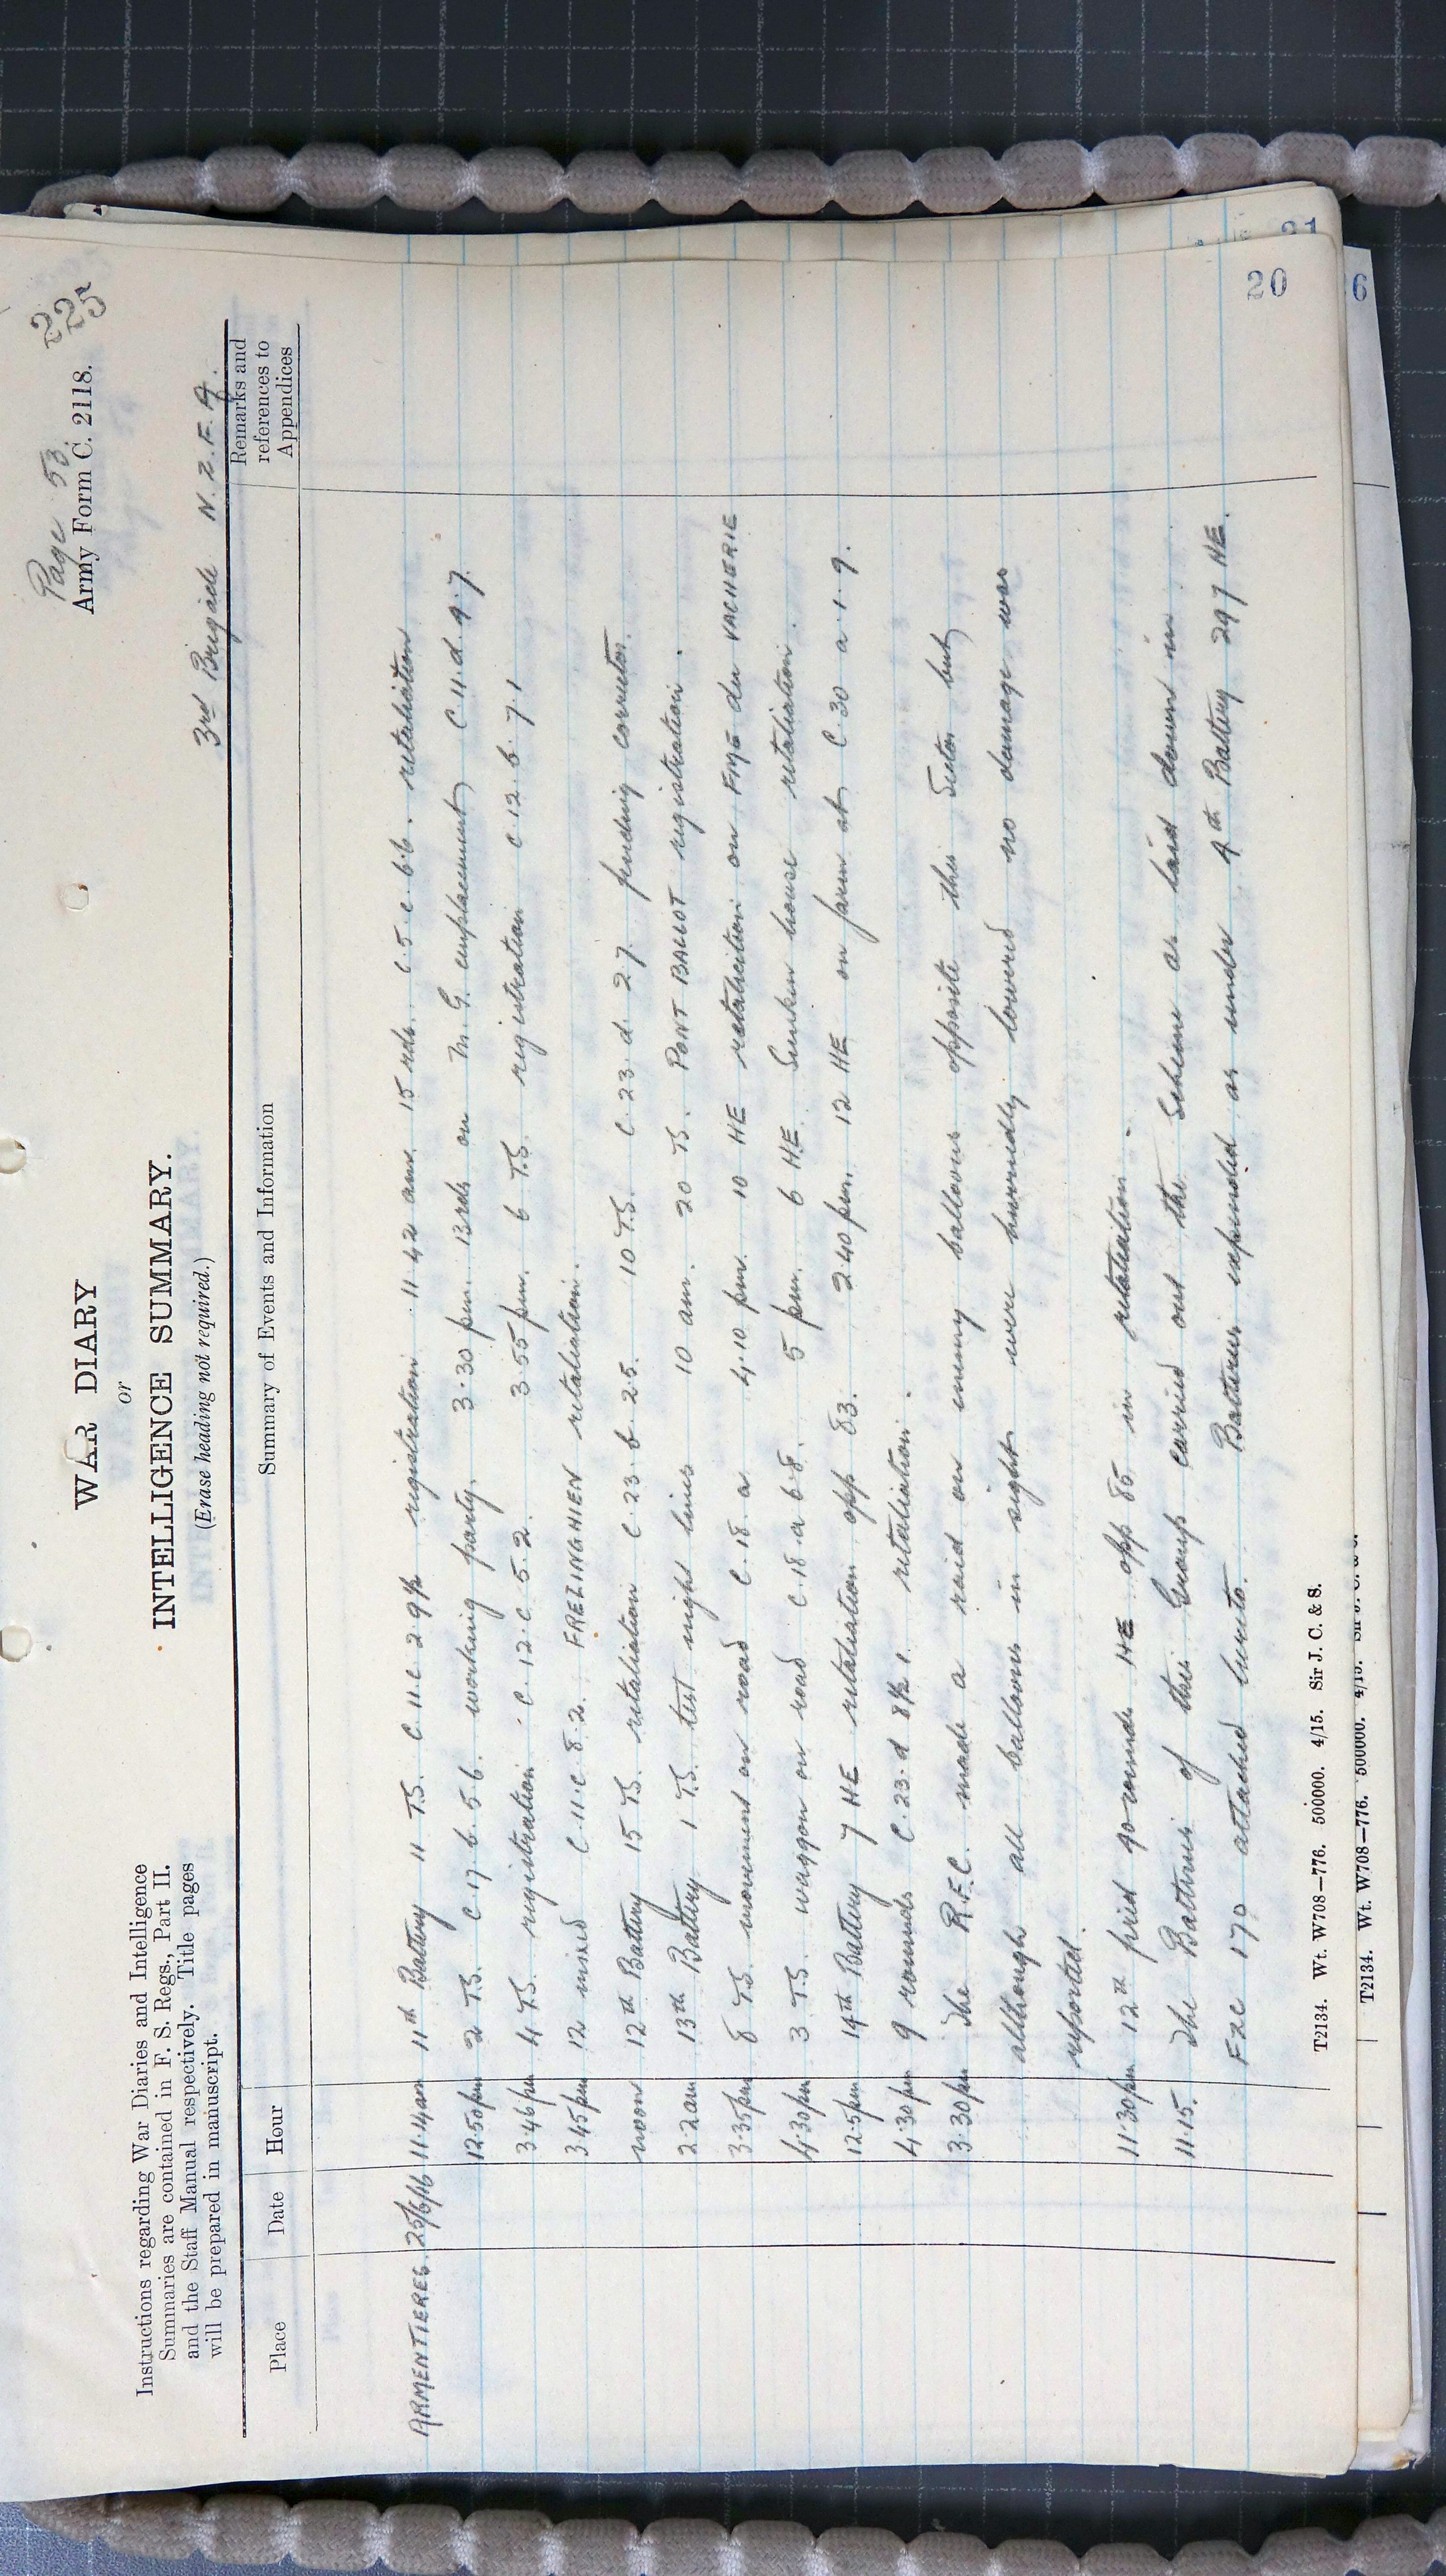 Page 53.
225
Army Form C. 2118.
WAR DIARY
or
INTELLIGENCE SUMMARY.
(Erase heading not required.)
Instructions regarding War Diaries and Intelligence
Summaries are contained in F. S. Regs., Part II.
and the Staff Manual respectively. Title pages
will be prepared in manuscript.
3rd Brigade N.Z.F.A.
Place Date Hour Summary of Events and Information Remarks and references to Appendices
ARMENTIERES. 25/6/16 11.14am 11th Battery 11 TS. C.11.c 2 9½ registration 11 42 am. 15 rds. C.5.c.6.6. retaliation
12.50pm 2 TS. C.17.b.5.6. working party. 3.30 pm. 13 rds on M.G. emplacement C.11.d.9.7.
3.46pm 4 TS. registration. C.12.c.5.2. 3.55 pm. 6 T.S. registration C.12.b.7.1
3.45pm 12 mixed C.11.c.8.2. FRELINGHIEN retaliation.
noon 12th Battery 15 TS. retaliation C.23.b.2.5. 10 T.S. C.23.d.2.7. finding corrector.
2.20am 13th Battery 1 T.S. test night lines 10 am. 20 TS. PONT BALLOT registration.
3.35pm 8 TS. movement on road C.18.a 4.10 pm. 10 HE retaliation on FME du VACHERIE
4.30pm 3 T.S. waggon on road C.18.a 6.8. 5 pm. 6 HE. Sunken house retaliation.
12.5pm 14th Battery 7 HE retaliation opp 83. 2.40 pm. 12 HE on farm at C.30 a.1.9.
4.30pm 9 rounds C.23.d 8½ 1. retaliation.
3.30pm The R.F.C. made a raid on enemy balloons opposite this Sector but
although all balloons in sight were hurriedly lowered no damage was
reported.
11.30pm 12th fired 40 rounds HE opp 85 in retaliation.
11.15. The Batteries of this Group carried out the Scheme as laid down in
FZC 170 attached hereto. Batteries expended as under 4th Battery 297 HE.
T2134. Wt. W708—776. 500000. 4/15. Sir J. C. & S.
20
T2134. Wt. W708—776. 500000. 4/15. Sir J. C. & S.
21
6